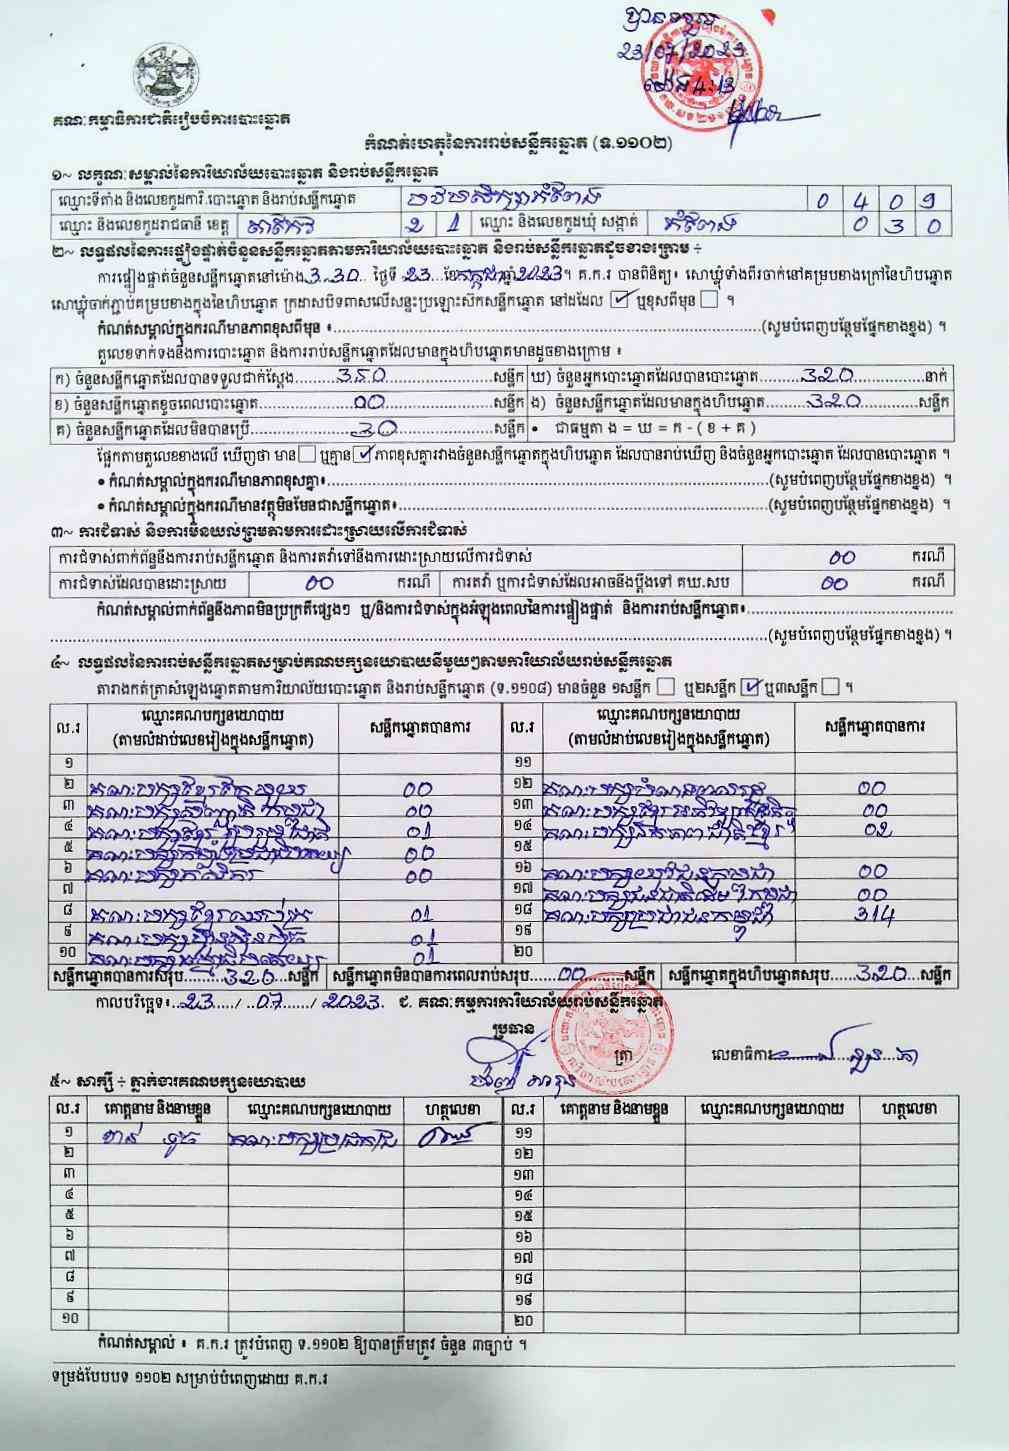 បានទទួល
23/07/2023
ម៉ោង 4:13
គណៈកម្មាធិការជាតិរៀបចំការបោះឆ្នោត
កំណត់ហេតុនៃការរាប់សន្លឹកឆ្នោត (ទ.១១០២)
១~ លក្ខណៈសម្គាល់នៃការិយាល័យបោះឆ្នោត និងរាប់សន្លឹកឆ្នោត
ឈ្មោះទីតាំង និងលេខកូដការិ.បោះឆ្នោត និងរាប់សន្លឹកឆ្នោត 0 4 0 9
ឈ្មោះ និងលេខកូដរាជធានី ខេត្ត តាកែវ 2 1 ឈ្មោះ និងលេខកូដឃុំ សង្កាត់ កំពែង 0 3 0
២~ លទ្ធផលនៃការផ្ទៀងផ្ទាត់ចំនួនសន្លឹកឆ្នោតតាមការិយាល័យបោះឆ្នោត និងរាប់សន្លឹកឆ្នោតដូចខាងក្រោម ÷
ការផ្ទៀងផ្ទាត់ចំនួនសន្លឹកឆ្នោតនៅម៉ោង 3.30 ថ្ងៃទី 23 ខែ កក្កដា ឆ្នាំ 2023។ គ.ក.រ បានពិនិត្យ៖ សោឃ្លុំទាំងពីរចាក់នៅគម្របខាងក្រៅនៃហិបឆ្នោត
សោឃ្លុំចាក់ភ្ជាប់គម្របខាងក្នុងនៃហិបឆ្នោត ក្រដាសបិទពាសលើសន្ទះប្រឡោះស៊កសន្លឹកឆ្នោត នៅដដែល ☑ ឬខុសពីមុន ☐ ។
កំណត់សម្គាល់ក្នុងករណីមានភាពខុសពីមុន ៖ (សូមបំពេញបន្ថែមផ្នែកខាងខ្នង) ។
តួលេខទាក់ទងនឹងការបោះឆ្នោត និងការរាប់សន្លឹកឆ្នោតដែលមានក្នុងហិបឆ្នោតមានដូចខាងក្រោម ៖
ក) ចំនួនសន្លឹកឆ្នោតដែលបានទទួលជាក់ស្តែង 350 សន្លឹក ឃ) ចំនួនអ្នកបោះឆ្នោតដែលបានបោះឆ្នោត 320 នាក់
ខ) ចំនួនសន្លឹកឆ្នោតខូចពេលបោះឆ្នោត 00 សន្លឹក ង) ចំនួនសន្លឹកឆ្នោតដែលមានក្នុងហិបឆ្នោត 320 សន្លឹក
គ) ចំនួនសន្លឹកឆ្នោតដែលមិនបានប្រើ 30 សន្លឹក • ជាធម្មតា ង = ឃ = ក - ( ខ + គ )
ផ្អែកតាមតួលេខខាងលើ ឃើញថា មាន ☐ ឬគ្មាន ☑ ភាពខុសគ្នារវាងចំនួនសន្លឹកឆ្នោតក្នុងហិបឆ្នោត ដែលបានរាប់ឃើញ និងចំនួនអ្នកបោះឆ្នោត ដែលបានបោះឆ្នោត ។
• កំណត់សម្គាល់ក្នុងករណីមានភាពខុសគ្នា៖ (សូមបំពេញបន្ថែមផ្នែកខាងខ្នង) ។
• កំណត់សម្គាល់ក្នុងករណីមានវត្ថុមិនមែនជាសន្លឹកឆ្នោត៖ (សូមបំពេញបន្ថែមផ្នែកខាងខ្នង) ។
៣~ ការជំទាស់ និងការមិនយល់ព្រមតាមការដោះស្រាយលើការជំទាស់
ការជំទាស់ពាក់ព័ន្ធនឹងការរាប់សន្លឹកឆ្នោត និងការតវ៉ាទៅនឹងការដោះស្រាយលើការជំទាស់ 00 ករណី
ការជំទាស់ដែលបានដោះស្រាយ 00 ករណី ការតវ៉ា ឬការជំទាស់ដែលអាចនឹងប្តឹងទៅ គឃ.សប 00 ករណី
កំណត់សម្គាល់ពាក់ព័ន្ធនឹងភាពមិនប្រក្រតីផ្សេងៗ ឬ/និងការជំទាស់ក្នុងអំឡុងពេលនៃការផ្ទៀងផ្ទាត់ និងការរាប់សន្លឹកឆ្នោត៖
(សូមបំពេញបន្ថែមផ្នែកខាងខ្នង) ។
៤~ លទ្ធផលនៃការរាប់សន្លឹកឆ្នោតសម្រាប់គណបក្សនយោបាយនីមួយៗតាមការិយាល័យរាប់សន្លឹកឆ្នោត
តារាងកត់ត្រាសំឡេងឆ្នោតតាមការិយាល័យបោះឆ្នោត និងរាប់សន្លឹកឆ្នោត (ទ.១១០៨) មានចំនួន ១សន្លឹក ☐ ឬ២សន្លឹក ☑ ឬ៣សន្លឹក ☐ ។
ល.រ ឈ្មោះគណបក្សនយោបាយ (តាមលំដាប់លេខរៀងក្នុងសន្លឹកឆ្នោត) សន្លឹកឆ្នោតបានការ ល.រ ឈ្មោះគណបក្សនយោបាយ (តាមលំដាប់លេខរៀងក្នុងសន្លឹកឆ្នោត) សន្លឹកឆ្នោតបានការ
១ ១១
២ គណៈបក្ស 00 ១២ គណៈបក្ស 00
៣ គណៈបក្ស 00 ១៣ គណៈបក្ស 00
៤ គណៈបក្ស 01 ១៤ គណៈបក្ស 02
៥ គណៈបក្ស 00 ១៥
៦ គណៈបក្ស 00 ១៦ គណៈបក្ស 00
៧ ១៧ គណៈបក្ស 00
៨ គណៈបក្ស 01 ១៨ គណៈបក្សប្រជាជនកម្ពុជា 314
៩ គណៈបក្ស 01 ១៩
១០ គណៈបក្ស 01 ២០
សន្លឹកឆ្នោតបានការសរុប 320 សន្លឹក សន្លឹកឆ្នោតមិនបានការពេលរាប់សរុប 00 សន្លឹក សន្លឹកឆ្នោតក្នុងហិបឆ្នោតសរុប 320 សន្លឹក
កាលបរិច្ឆេទ៖ 23 / 07 / 2023 ជ. គណៈកម្មការការិយាល័យរាប់សន្លឹកឆ្នោត
ប្រធាន
ត្រា លេខាធិការ
៥~ សាក្សី ÷ ភ្នាក់ងារគណបក្សនយោបាយ
ល.រ គោត្តនាម និងនាមខ្លួន ឈ្មោះគណបក្សនយោបាយ ហត្ថលេខា ល.រ គោត្តនាម និងនាមខ្លួន ឈ្មោះគណបក្សនយោបាយ ហត្ថលេខា
១ គណៈបក្ស ១១
២ ១២
៣ ១៣
៤ ១៤
៥ ១៥
៦ ១៦
៧ ១៧
៨ ១៨
៩ ១៩
១០ ២០
កំណត់សម្គាល់ ៖ គ.ក.រ ត្រូវបំពេញ ទ.១១០២ ឱ្យបានត្រឹមត្រូវ ចំនួន ៣ច្បាប់ ។
ទម្រង់បែបបទ ១១០២ សម្រាប់បំពេញដោយ គ.ក.រ